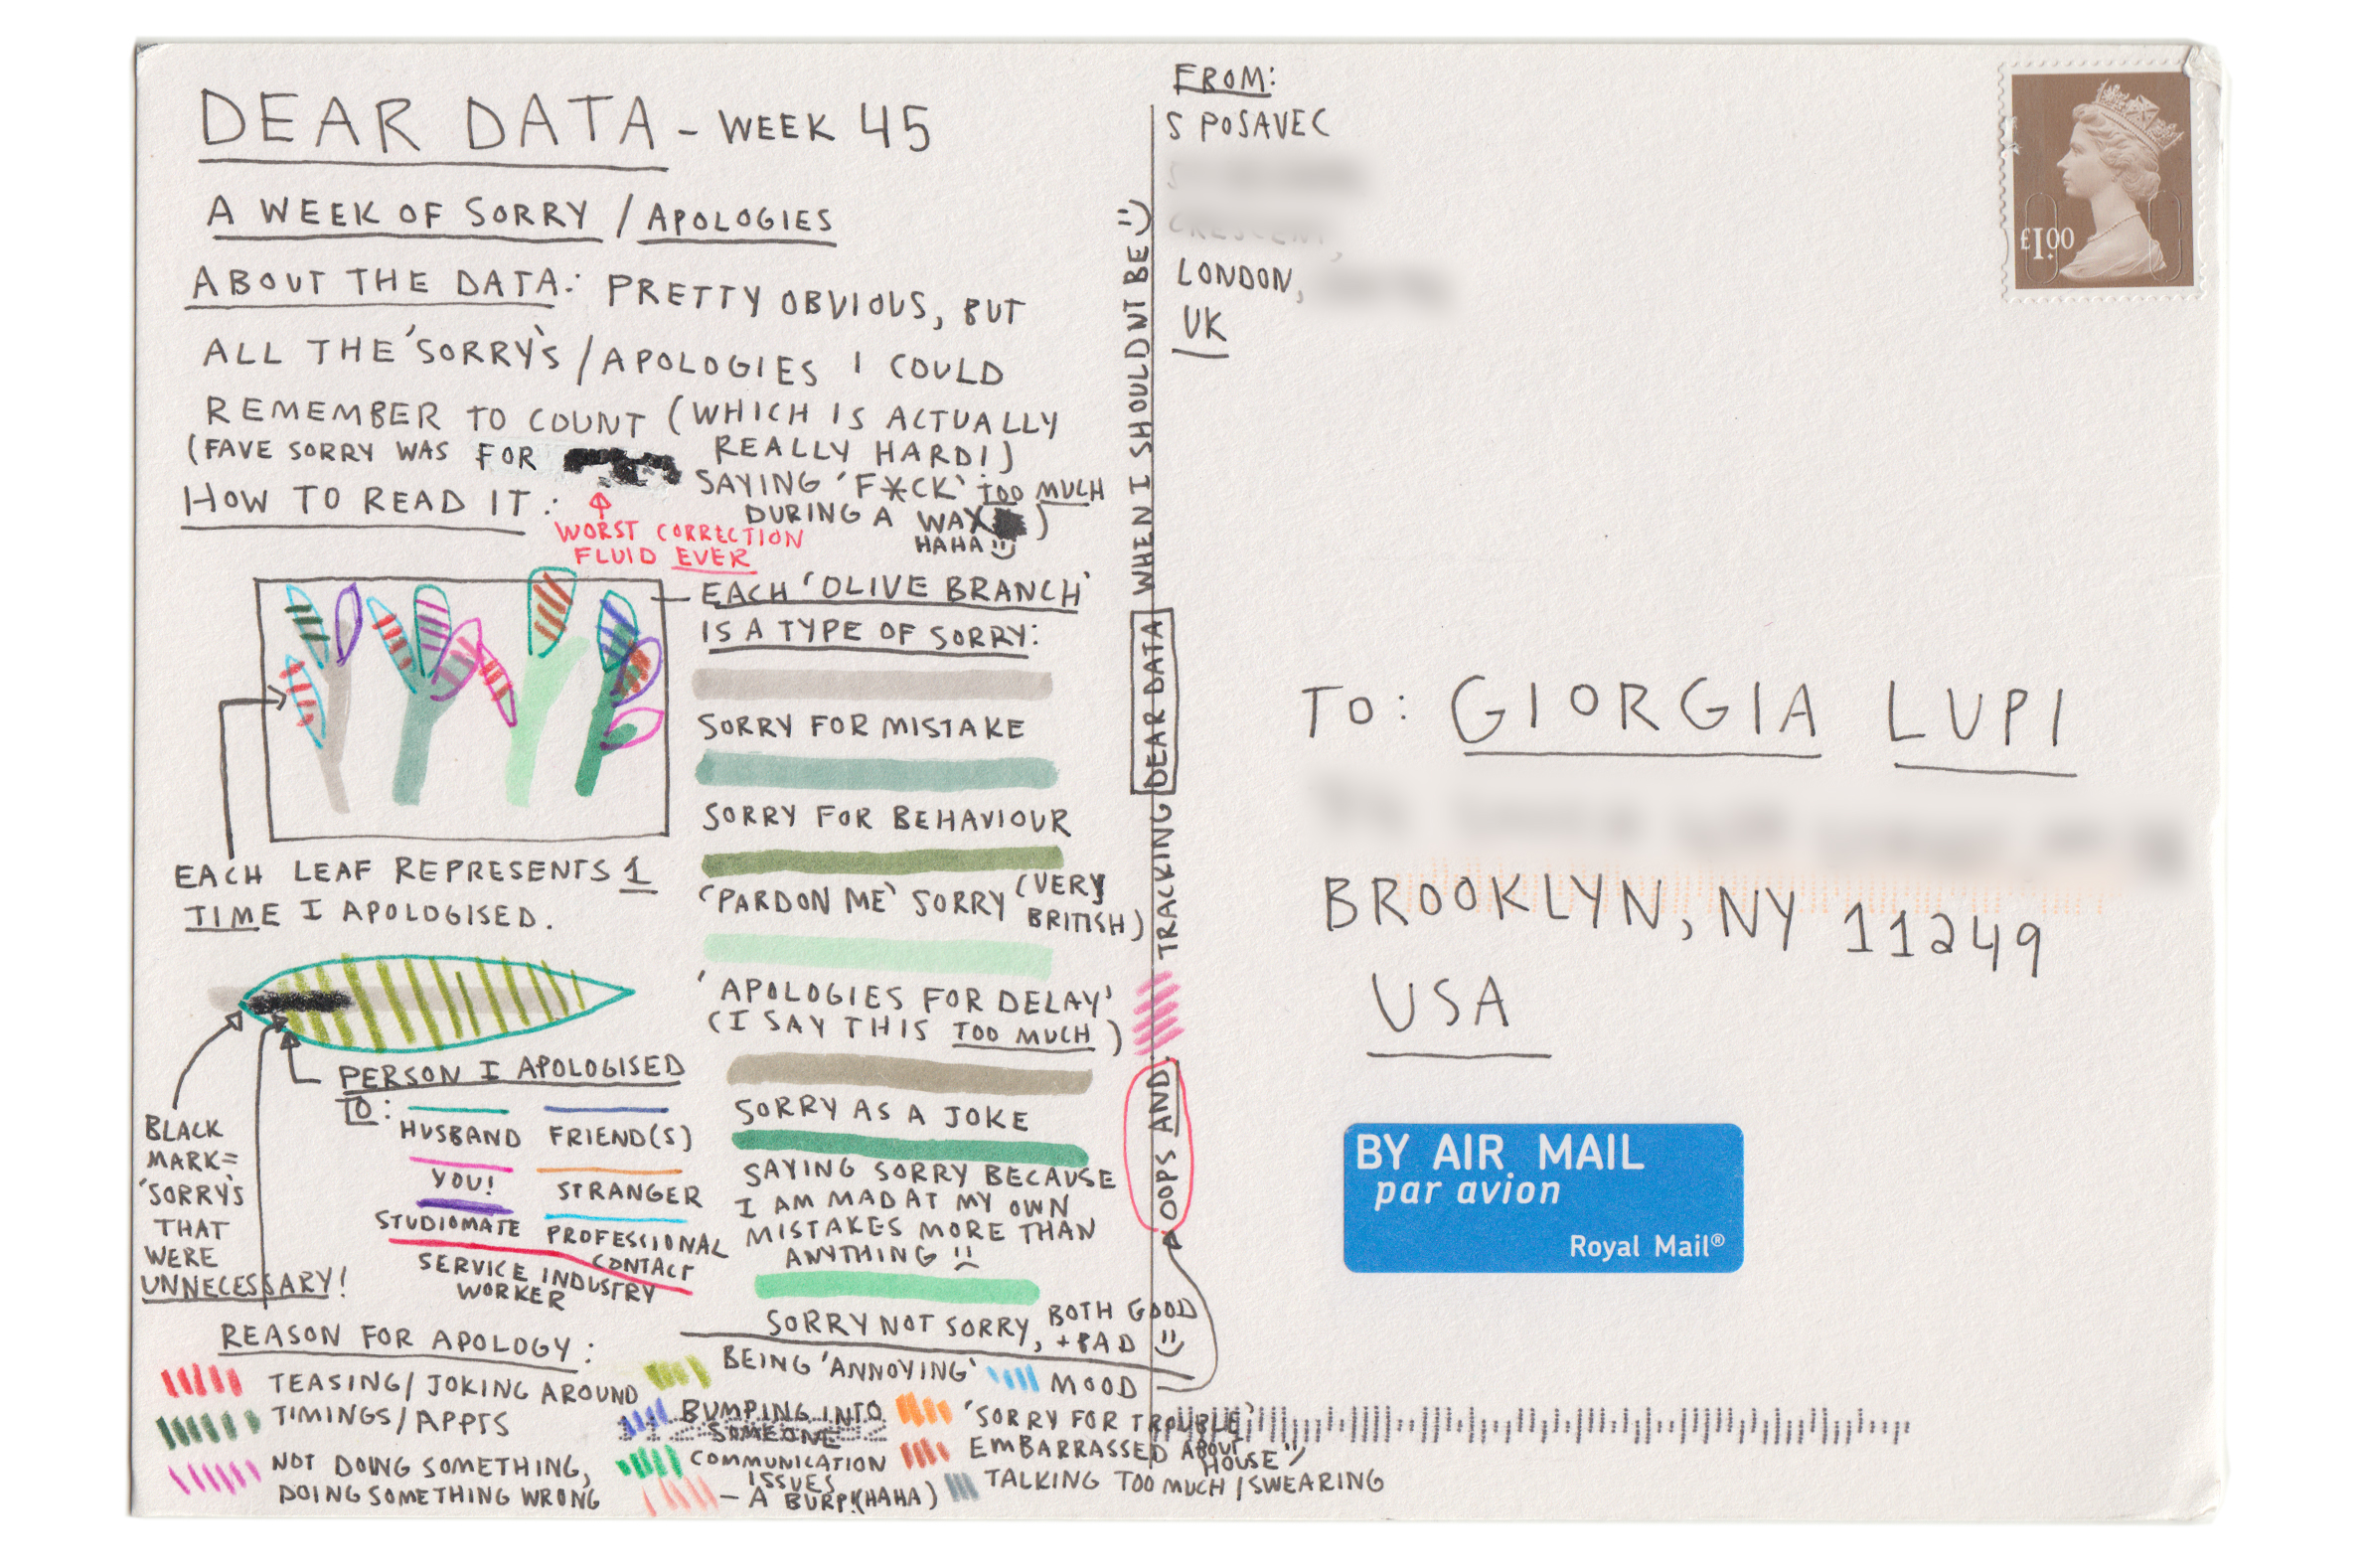 DEAR DATA - WEEK 45
A WEEK OF SORRY / APOLOGIES
ABOUT THE DATA: PRETTY OBVIOUS, BUT
ALL THE 'SORRY'S / APOLOGIES I COULD
REMEMBER TO COUNT (WHICH IS ACTUALLY
REALLY HARD!)
(FAVE SORRY WAS FOR
SAYING 'F*CK' TOO MUCH
DURING A WAX )
HAHA
WORST CORRECTION
FLUID EVER
HOW TO READ IT:
EACH 'OLIVE BRANCH'
IS A TYPE OF SORRY:
SORRY FOR MISTAKE
SORRY FOR BEHAVIOUR
'PARDON ME' SORRY (VERY
BRITISH)
'APOLOGIES FOR DELAY'
(I SAY THIS TOO MUCH)
SORRY AS A JOKE
SAYING SORRY BECAUSE
I AM MAD AT MY OWN
MISTAKES MORE THAN
ANYTHING
SORRY NOT SORRY, BOTH GOOD
+ BAD
EACH LEAF REPRESENTS 1
TIME I APOLOGISED.
PERSON I APOLOGISED
TO:
HUSBAND
FRIEND(S)
YOU!
STRANGER
STUDIOMATE
PROFESSIONAL
CONTACT
SERVICE INDUSTRY
WORKER
BLACK
MARK=
'SORRY'S
THAT
WERE
UNNECESSARY!
REASON FOR APOLOGY:
TEASING/JOKING AROUND
TIMINGS/APPTS
NOT DOING SOMETHING,
DOING SOMETHING WRONG
BEING 'ANNOYING'
BUMPING INTO
SOMEONE
COMMUNICATION
ISSUES
- A BURP!(HAHA)
MOOD
'SORRY FOR TROUBLE'
EMBARRASSED ABOUT
HOUSE"
TALKING TOO MUCH/SWEARING
OOPS AND TRACKING DEAR DATA WHEN I SHOULDNT BE
FROM:
S POSAVEC
CRESCENT,
LONDON,
UK
£1.00
TO: GIORGIA LUPI
BROOKLYN, NY 11249
USA
BY AIR MAIL
par avion
Royal Mail®